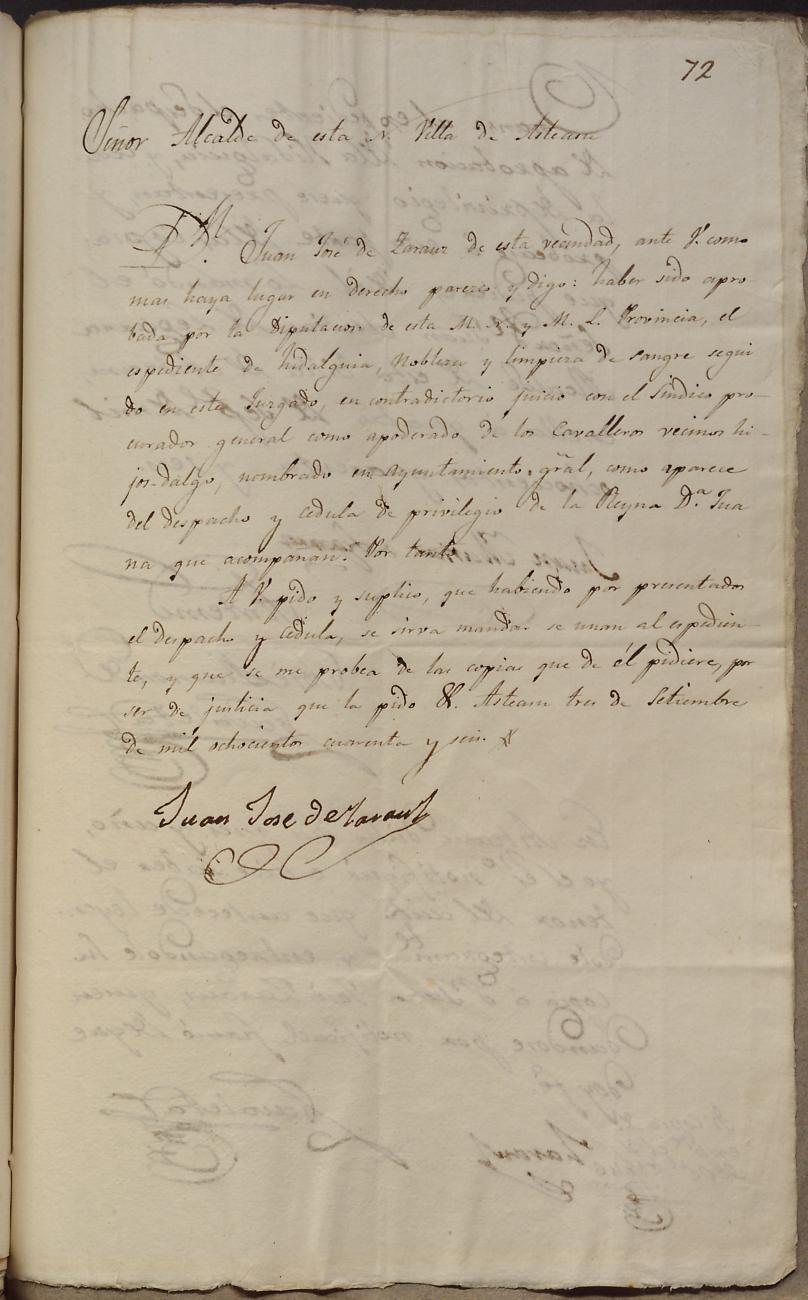 72
Señor Alcalde de esta N. Villa de Asteasu
D.n Juan José de Zarauz de esta vecindad, ante V. como
mas haya lugar en derecho parezco y digo: haber sido apro-
bada por la Diputacion de esta M. N. y M. L. Provincia, el
espediente de hidalguia, nobleza y limpieza de sangre segui
do en este Juzgado, en contradictorio juicio con el Sindico pro-
curador general como apoderado de los Cavalleros vecinos hi-
jos-dalgo, nombrado en ayuntamiento gral, como aparece
del despacho y cedula de privilegio de la Reyna D.a Jua
na que acompañan: Por tanto
A V. pido y suplico, que habiendo por presentados
el despacho y cedula, se sirva mandar se unan al espedien-
te, y que se me probea de las copias que de él pidiere, por
ser de justicia que la pido &. Asteasu tres de Setiembre
de mil ochocientos cuarenta y seis.
Juan Jose de Zarauz